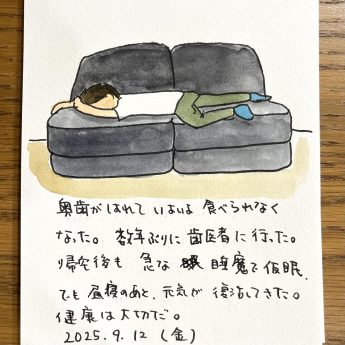 奥歯がはれて いよいよ 食べられなく
なった。数年ぶりに 歯医者に行った。
帰宅後も 急な 睡魔で仮眠.
でも 昼寝のあと、元気が 復活してきた。
健康は大切だ。
2025.9.12 (金)